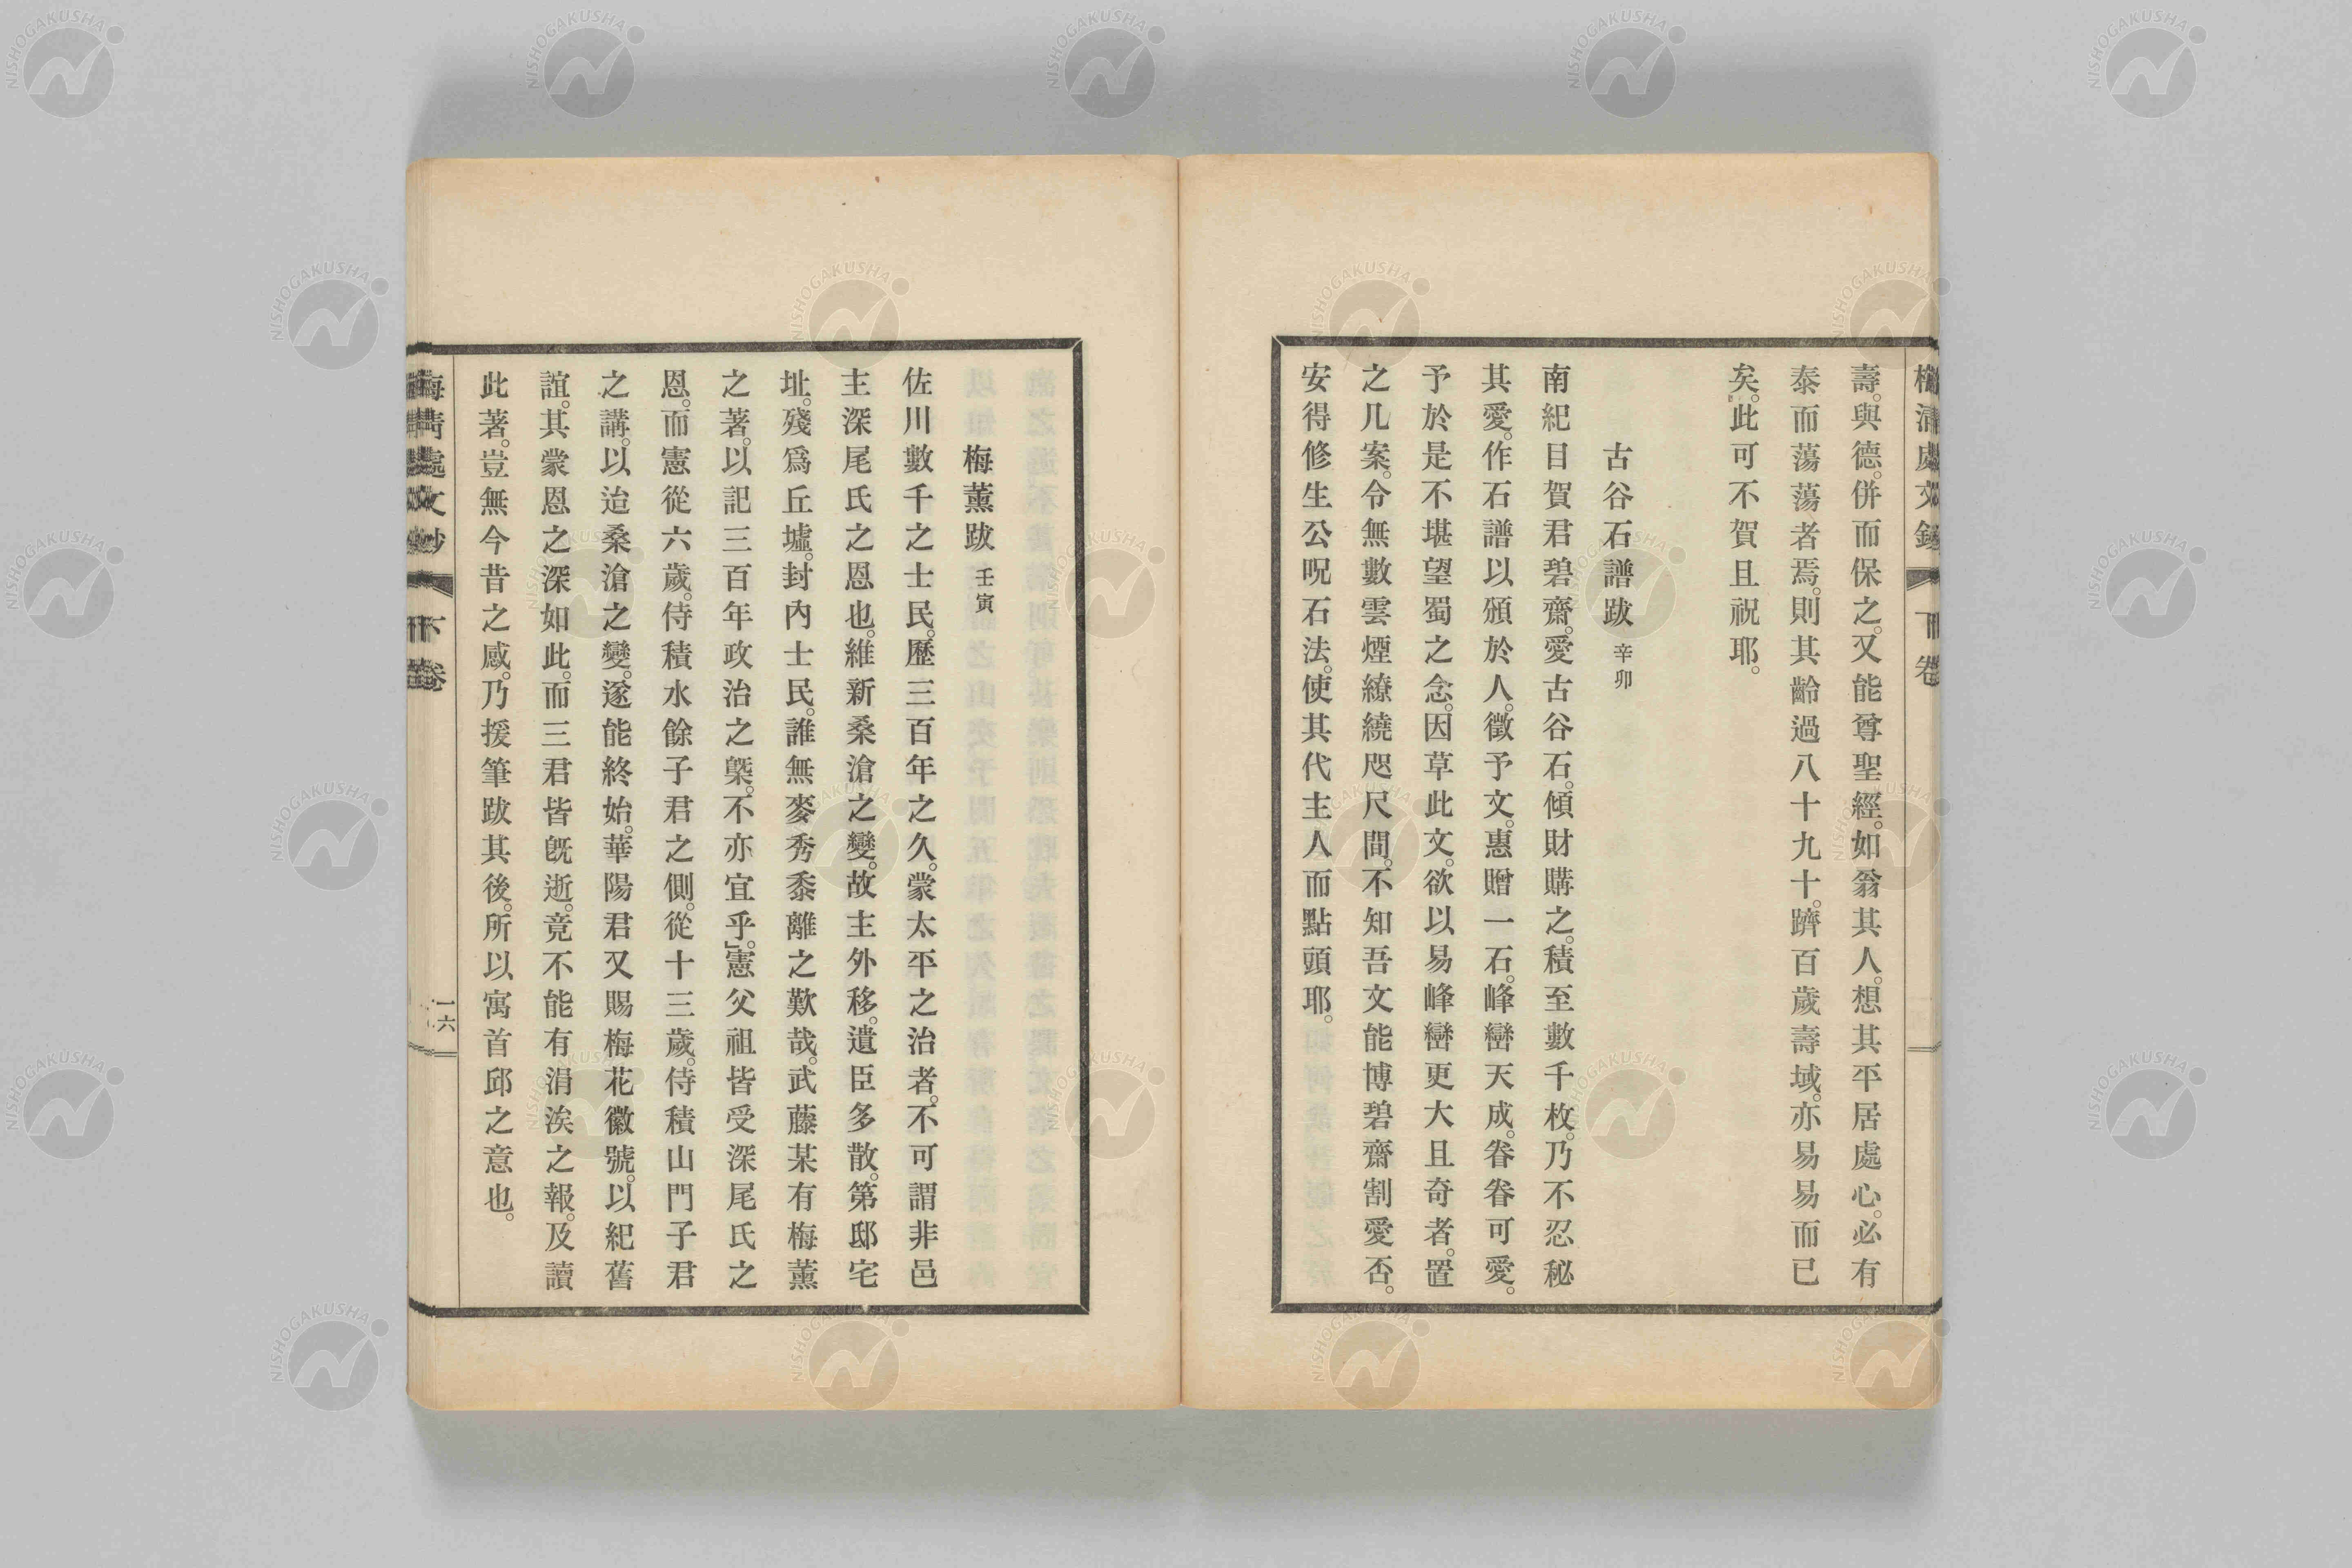 壽。與德。併而保之。又能尊聖經。如翁其人。想其平居處心。必有
泰而蕩蕩者焉。則其齡過八十九十。躋百歲壽域。亦易易而已
矣。此可不賀且祝耶。
古谷石譜跋 辛卯
南紀目賀君碧齋。愛古谷石。傾財購之。積至數千枚。乃不忍秘
其愛。作石譜以頒於人。徵予文。惠贈一石。峰巒天成。眷眷可愛。
予於是不堪望蜀之念。因草此文。欲以易峰巒更大且奇者。置
之几案。令無數雲煙繚繞咫尺間。不知吾文能博碧齋割愛否。
安得修生公呪石法。使其代主人而點頭耶。
梅薰跋 壬寅
佐川數千之士民。歷三百年之久。蒙太平之治者。不可謂非邑
主深尾氏之恩也。維新桑滄之變。故主外移。遺臣多散。第邸宅
址。殘爲丘墟。封內士民。誰無麥秀黍離之歎哉。武藤某有梅薰
之著。以記三百年政治之槩。不亦宜乎。」憲父祖皆受深尾氏之
恩。而憲從六歲。侍積水餘子君之側。從十三歲。侍積山門子君
之講。以迨桑滄之變。遂能終始。華陽君又賜梅花徽號。以紀舊
誼。其蒙恩之深如此。而三君皆既逝。竟不能有涓涘之報。及讀
此著。豈無今昔之感。乃援筆跋其後。所以寓首邱之意也。
梅清處文鈔 下卷
一六
NISHOGAKUSHA